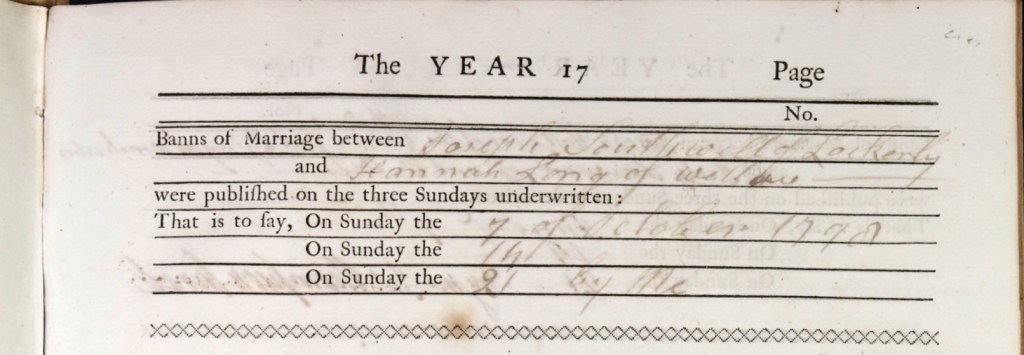 The YEAR 17 Page
No.
Banns of Marriage between Joseph Southwell of Lockerly
and Hannah Long of
were publiſhed on the three Sundays underwritten:
That is to ſay, On Sunday the 7 of October 1798
On Sunday the 14
On Sunday the 21 by Me